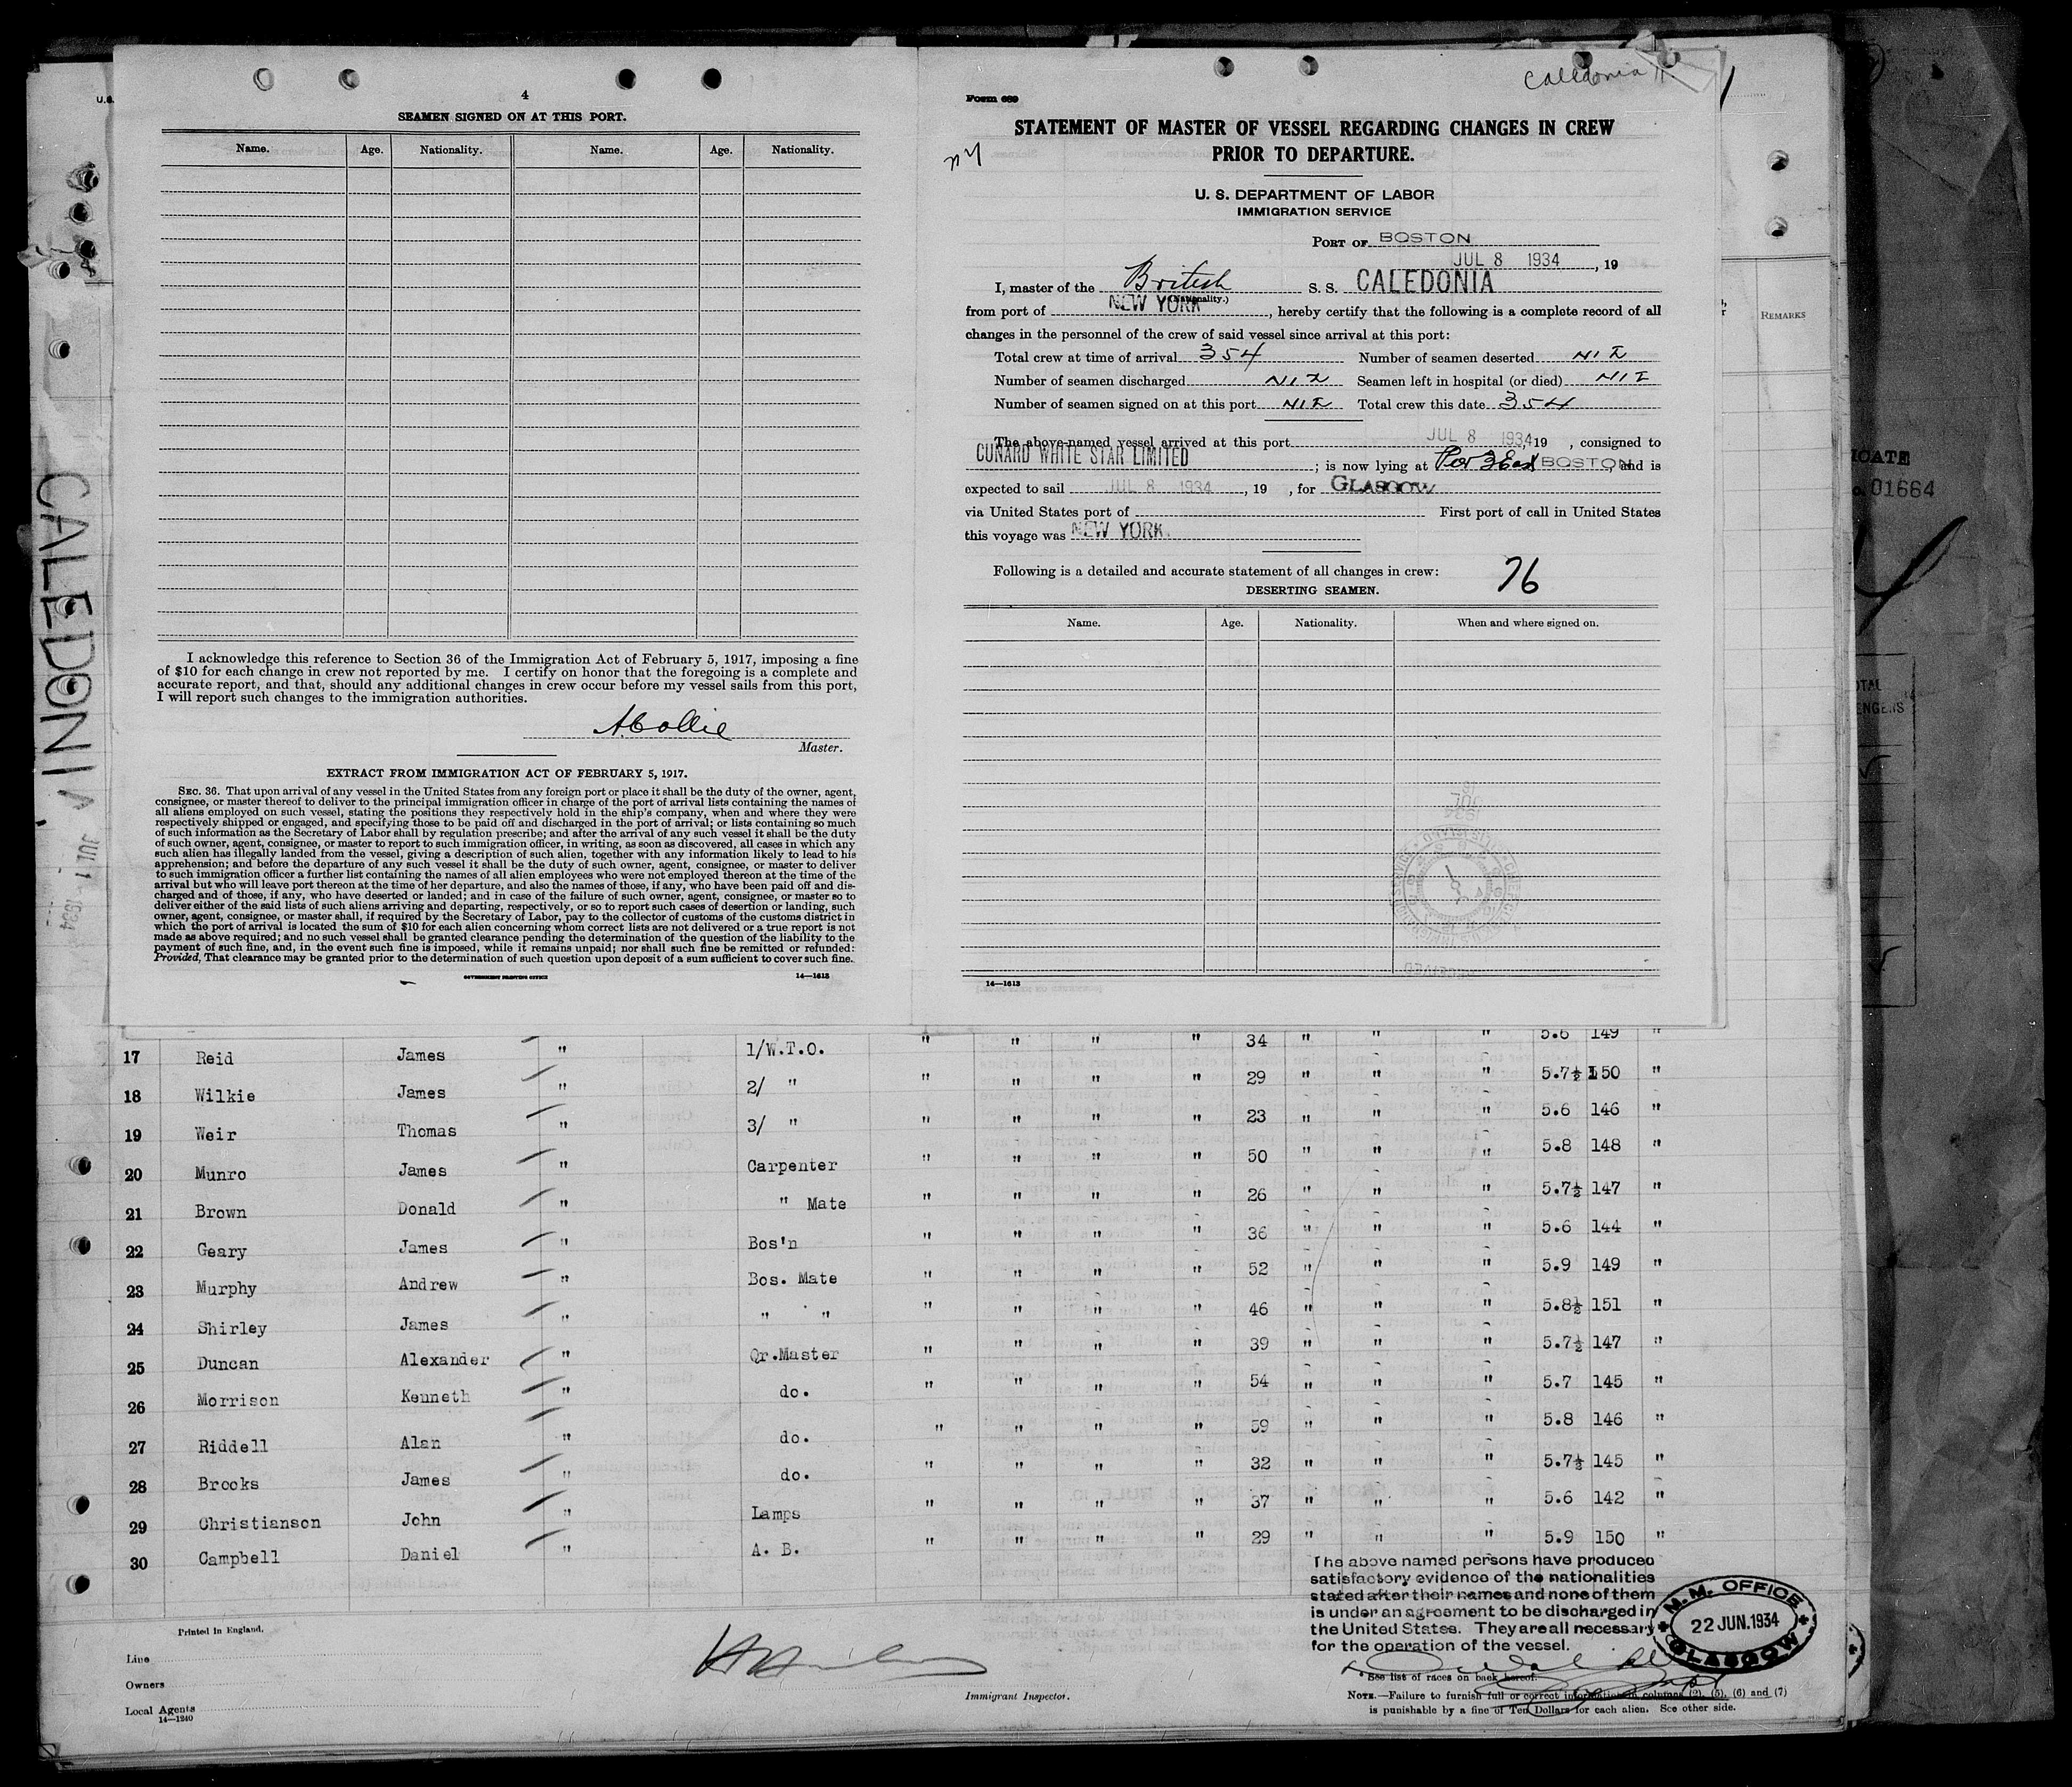 4
SEAMEN SIGNED ON AT THIS PORT.
Name. Age. Nationality. Name. Age. Nationality.
I acknowledge this reference to Section 36 of the Immigration Act of February 5, 1917, imposing a fine
of $10 for each change in crew not reported by me. I certify on honor that the foregoing is a complete and
accurate report, and that, should any additional changes in crew occur before my vessel sails from this port,
I will report such changes to the immigration authorities.
A Collie
Master.
EXTRACT FROM IMMIGRATION ACT OF FEBRUARY 5, 1917.
SEC. 36. That upon arrival of any vessel in the United States from any foreign port or place it shall be the duty of the owner, agent,
consignee, or master thereof to deliver to the principal immigration officer in charge of the port of arrival lists containing the names of
all aliens employed on such vessel, stating the positions they respectively hold in the ship's company, when and where they were
respectively shipped or engaged, and specifying those to be paid off and discharged in the port of arrival; or lists containing so much
of such information as the Secretary of Labor shall by regulation prescribe; and after the arrival of any such vessel it shall be the duty
of such owner, agent, consignee, or master to report to such immigration officer, in writing, as soon as discovered, all cases in which any
such alien has illegally landed from the vessel, giving a description of such alien, together with any information likely to lead to his
apprehension; and before the departure of any such vessel it shall be the duty of such owner, agent, consignee, or master to deliver
to such immigration officer a further list containing the names of all alien employees who were not employed thereon at the time of the
arrival but who will leave port thereon at the time of her departure, and also the names of those, if any, who have been paid off and dis-
charged and of those, if any, who have deserted or landed; and in case of the failure of such owner, agent, consignee, or master so to
deliver either of the said lists of such aliens arriving and departing, respectively, or so to report such cases of desertion or landing, such
owner, agent, consignee, or master shall, if required by the Secretary of Labor, pay to the collector of customs of the customs district in
which the port of arrival is located the sum of $10 for each alien concerning whom correct lists are not delivered or a true report is not
made as above required; and no such vessel shall be granted clearance pending the determination of the question of the liability to the
payment of such fine, and, in the event such fine is imposed, while it remains unpaid; nor shall such fine be remitted or refunded:
Provided, That clearance may be granted prior to the determination of such question upon deposit of a sum sufficient to cover such fine.
GOVERNMENT PRINTING OFFICE 14—1613
Caledonia
Form 689
STATEMENT OF MASTER OF VESSEL REGARDING CHANGES IN CREW
PRIOR TO DEPARTURE.
ny
U. S. DEPARTMENT OF LABOR
IMMIGRATION SERVICE
PORT OF BOSTON
JUL 8 1934, 19
I, master of the British S. S. CALEDONIA
(Nationality.)
from port of NEW YORK, hereby certify that the following is a complete record of all
changes in the personnel of the crew of said vessel since arrival at this port:
Total crew at time of arrival 354 Number of seamen deserted NIL
Number of seamen discharged NIL Seamen left in hospital (or died) NIL
Number of seamen signed on at this port NIL Total crew this date 354
The above-named vessel arrived at this port JUL 8 1934 19 , consigned to
CUNARD WHITE STAR LIMITED ; is now lying at BOSTON, and is
expected to sail JUL 8 1934, 19 , for GLASGOW
via United States port of First port of call in United States
this voyage was NEW YORK.
Following is a detailed and accurate statement of all changes in crew: 76
DESERTING SEAMEN.
Name. Age. Nationality. When and where signed on.
14—1613
REMARKS
01664
CALEDONIA JUL 1 1934
5.6 149 "
17 Reid James " 1/W.T.O. " " " " 34 " " "
18 Wilkie James " 2/ " " " " " 29 " " " 5.7½ 150 "
19 Weir Thomas " 3/ " " " " " 23 " " " 5.6 146 "
20 Munro James " Carpenter " " " " 50 " " " 5.8 148 "
21 Brown Donald " " Mate " " " " 26 " " " 5.7½ 147 "
22 Geary James " Bos'n " " " " 36 " " " 5.6 144 "
23 Murphy Andrew " Bos. Mate " " " " 52 " " " 5.9 149 "
24 Shirley James " " " " " " " 46 " " " 5.8½ 151 "
25 Duncan Alexander " Qr.Master " " " " 39 " " " 5.7½ 147 "
26 Morrison Kenneth " do. " " " " 54 " " " 5.7 145 "
27 Riddell Alan " do. " " " " 59 " " " 5.8 146 "
28 Brooks James " do. " " " " 32 " " " 5.7½ 145 "
29 Christianson John " Lamps " " " " 37 " " " 5.6 142 "
30 Campbell Daniel " A. B. " " " " 29 " " " 5.9 150 "
The above named persons have produced
satisfactory evidence of the nationalities
stated after their names and none of them
is under an agreement to be discharged in
the United States. They are all necessary
for the operation of the vessel.
M.M. OFFICE
22 JUN. 1934
GLASGOW
Printed in England.
Line
Owners
Local Agents
14—1240
Immigrant Inspector.
* See list of races on back hereof.
NOTE.—Failure to furnish full or correct information in columns (2), (5), (6) and (7)
is punishable by a fine of Ten Dollars for each alien. See other side.